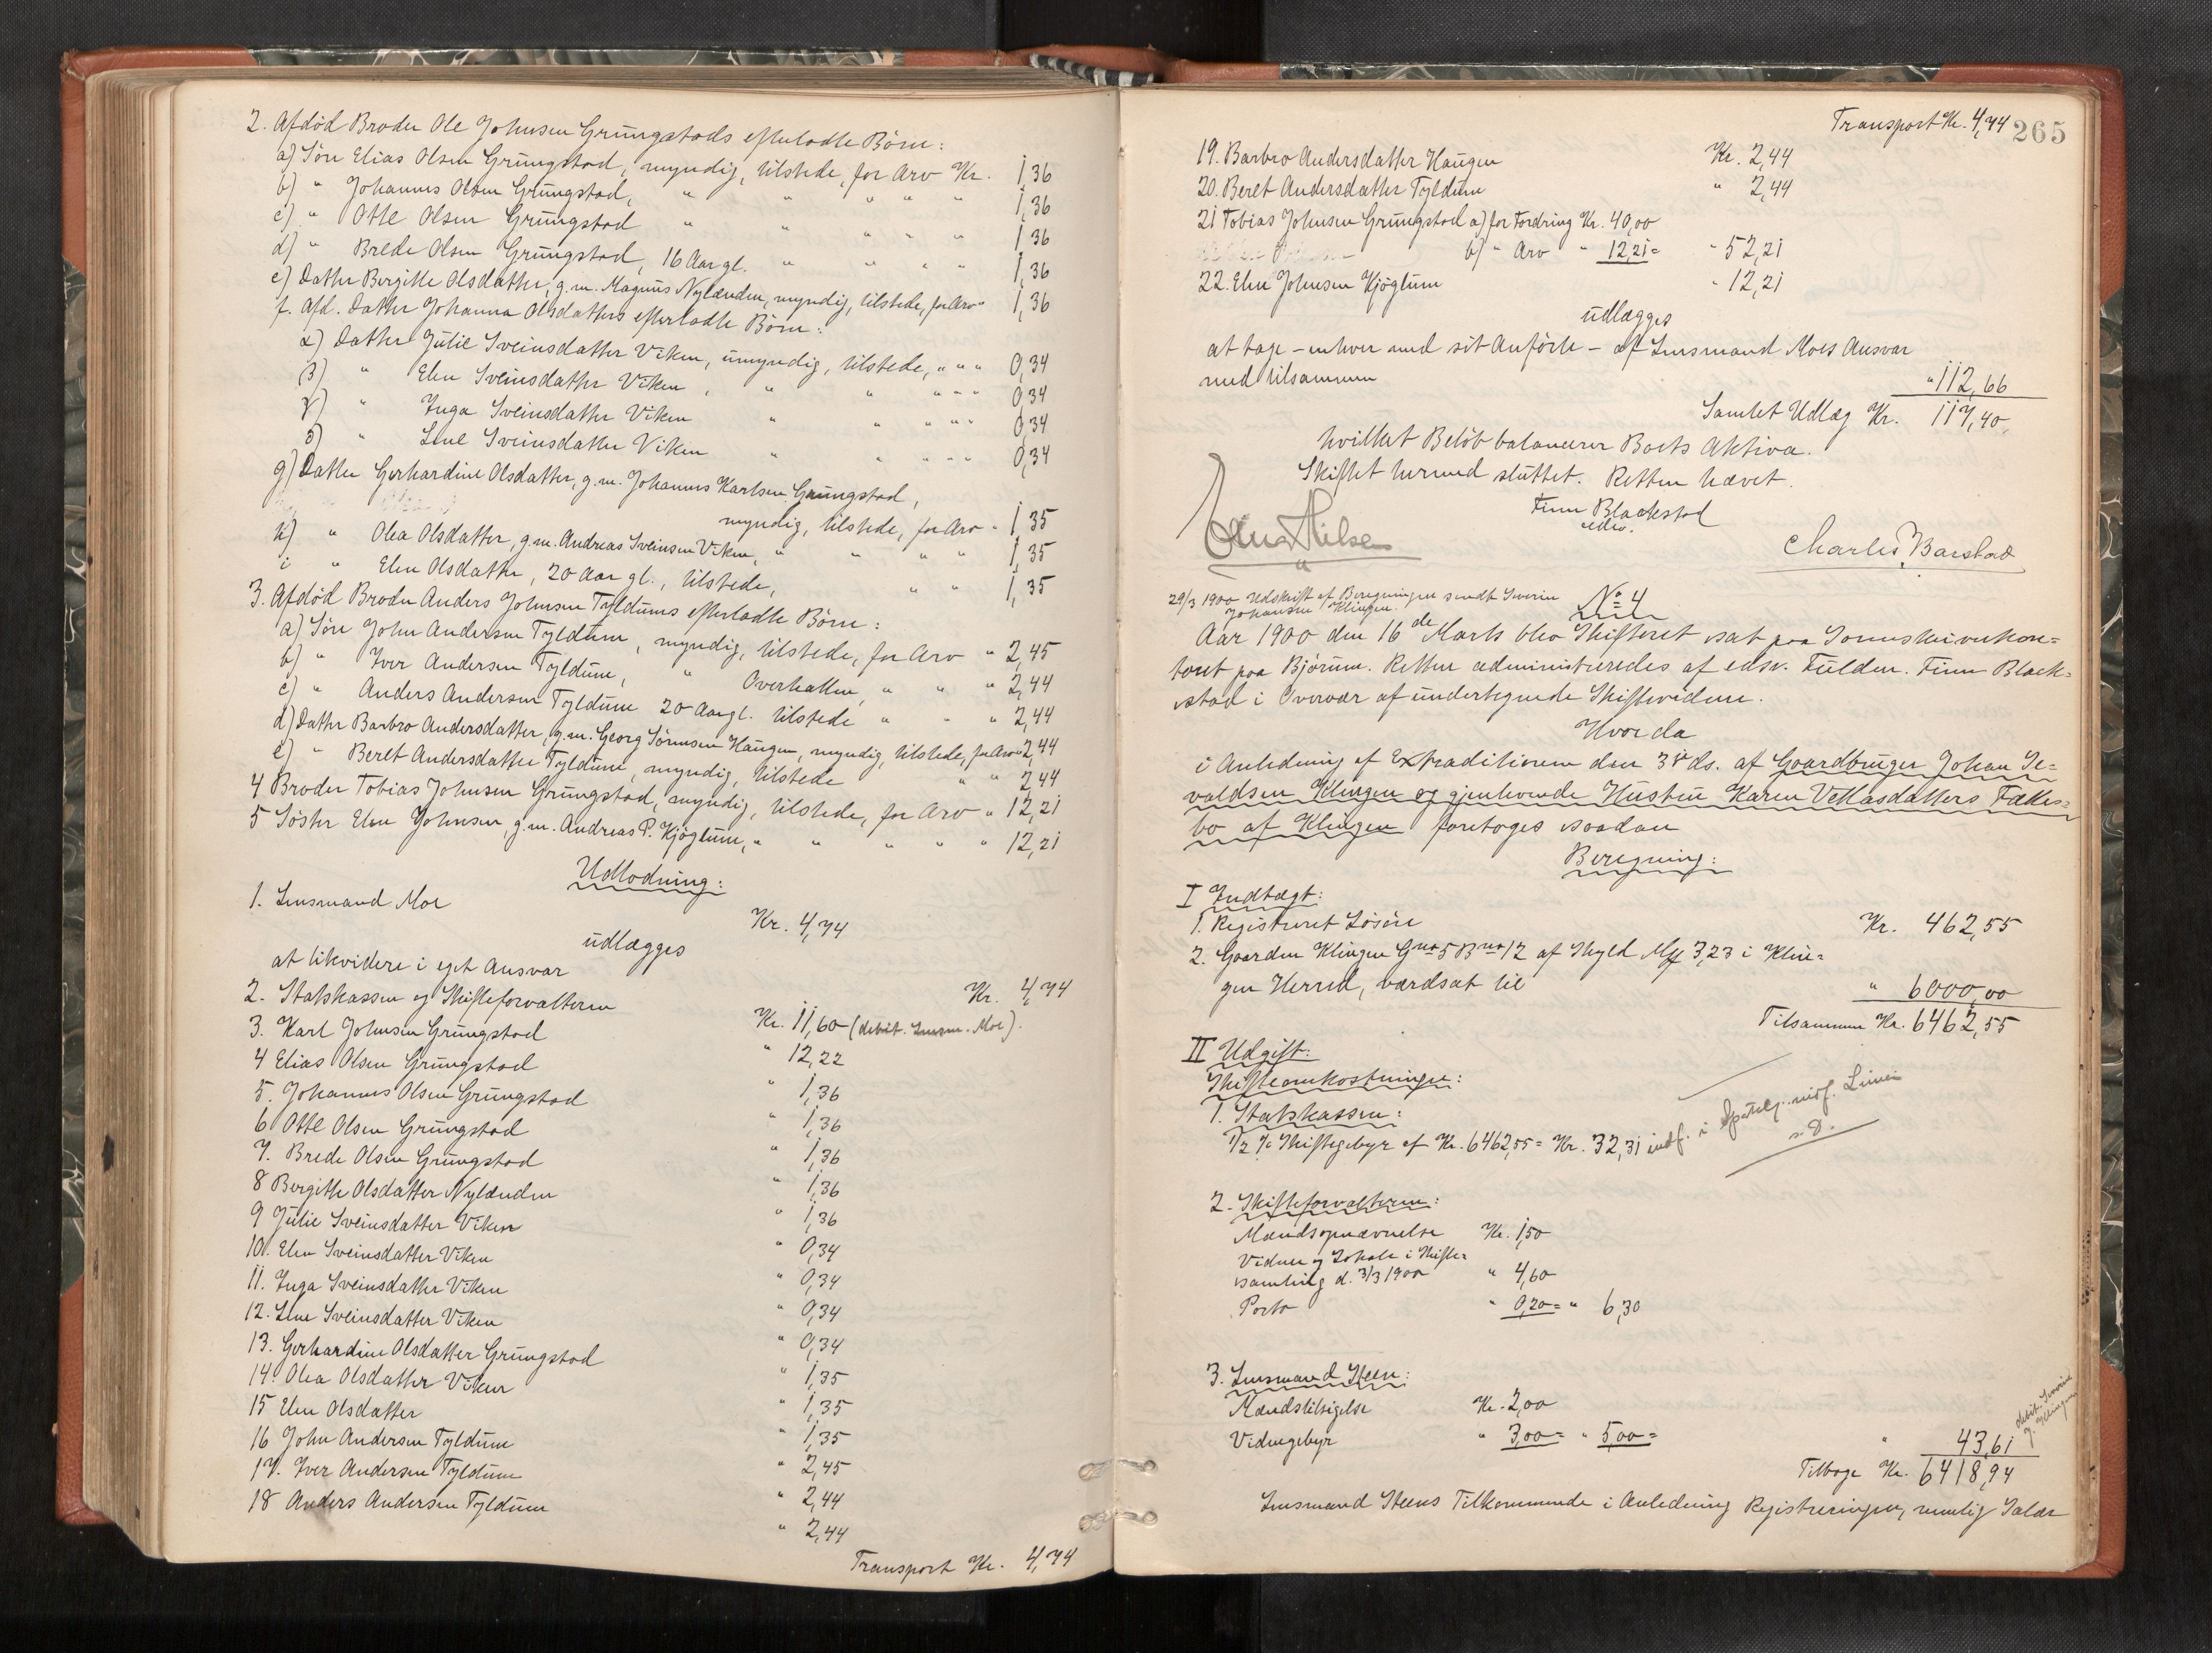 2. Afdød Broder Ole Johnsen Grungstads efterladte Børn:
a) Søn Elias Olsen Grungstad, myndig, tilstede, for Arv Kr. 1,36
b) " Johannes Olsen Grungstad, " " " " " 1,36
c) " Otte Olsen Grungstad " " " " " 1,36
d) " Brede Olsen Grungstad, 16 Aar gl. " " " " 1,36
e) Datter Bergitte Olsdatter, g.m. Magnus Nylænden, myndig, tilstede, for Arv " 1,36
f. Afd. Datter Johanna Olsdatters efterladte Børn:
α) Datter Julie Sveinsdatter Viken, umyndig, tilstede, " " " 0,34
β) " Elen Sveinsdatter Viken, " " " " " 0,34
γ) " Inga Sveinsdatter Viken " " " " " 0,34
δ) " Line Sveinsdatter Viken " " " " " 0,34
g) Datter Gerhardine Olsdatter, g.m. Johannes Karlsen Grungstad,
myndig, tilstede, for Arv " 1,35
h) " Olea Olsdatter, g.m. Andreas Sveinsen Viken, " " " " 1,35
i " Elen Olsdatter, 20 Aar gl., tilstede, " " 1,35
3. Afdød Broder Anders Johnsen Tyldums efterladte Børn:
a) Søn John Andersen Tyldum, myndig, tilstede, for Arv " 2,45
b) " Iver Andersen Tyldum, " Overhallen, " " " 2,44
c) " Anders Andersen Tyldum 20 Aar gl. tilstede " " " 2,44
d) Datter Barbro Andersdatter, g.m. Georg Sörensen Haugen, myndig, tilstede, for Arv " 2,44
e) " Beret Andersdatter Tyldum, myndig, tilstede " " 2,44
4 Broder Tobias Johnsen Grungstad, myndig, tilstede, for Arv " 12,21
5 Søster Elen Johnsen, g.m. Andreas P. Kjøglum, " " " " " 12,21
Udlodning:
1. Lensmand Moe Kr. 4,74
udlægges
at likvidere i eget Ansvar Kr. 4,74
2. Statskassen og Skifteforvalteren Kr. 11,60 (debit. Lensm. Moe).
3. Karl Johnsen Grungstad " 12,22
4 Elias Olsen Grungstad " 1,36
5. Johannes Olsen Grungstad " 1,36
6 Otte Olsen Grungstad " 1,36
7. Brede Olsen Grungstad " 1,36
8 Bergitte Olsdatter Nylænden " 1,36
9 Julie Sveinsdatter Viken " 0,34
10. Elen Sveinsdatter Viken " 0,34
11. Inga Sveinsdatter Viken " 0,34
12. Line Sveinsdatter Viken " 0,34
13. Gerhardine Olsdatter Grungstad " 1,35
14. Olea Olsdatter Viken " 1,35
15 Elen Olsdatter " 1,35
16 John Andersen Tyldum " 2,45
17. Iver Andersen Tyldum " 2,44
18 Anders Andersen Tyldum " 2,44
Transport Kr. 4,74
Transport Kr. 4,74 265
19. Barbro Andersdatter Haugen Kr. 2,44
20. Beret Andersdatter Tyldum " 2,44
21 Tobias Johnsen Grungstad a) for Fordring Kr. 40,00
b) " Arv " 12,21 = " 52,21
22. Elen Johnsen Kjøglum " 12,21
udlægges
at tage – enhver med sit Anførte – af Lensmand Moes Ansvar
med tilsammen " 112,66
Samlet Udlæg Kr. 117,40.
hvilket Beløb balancerer Boets Aktiva.
Skiftet hermed sluttet. Retten hævet.
Finn Blackstad
edsv.
Charles Barstad
29/3 1900 Udskrift af Beregningen sendt Iverin
Johansen Klingen.
No 4
Aar 1900 den 16de Marts blev Skifteret sat paa Sorenskriverkon=
toret paa Bjørum. Retten administreredes af edsv. Fuldm. Finn Black=
stad i Overvær af undertegnede Skiftevidner.
Hvorda
i Anledning af Extraditionen den 3die ds. af Gaardbruger Johan Se=
valdsen Klingen og gjenlevende Hustru Karen Vetlasdatters Fælles=
bo af Klingen foretoges saadan
Beregning:
I Indtægt:
1. Registreret Løsøre Kr. 462,55
2. Gaarden Klingen Gno 5 Bno 12 af Skyld Mk 3,23 i Klin=
gen Herred, værdsat til " 6000,00
Tilsammen Kr. 6462,55
II Udgift:
Skifteomkostninger:
1. Statskassen:
1/2 % Skiftegebyr af Kr. 6462,55 = Kr. 32,31 indf. i
2. Skifteforvalteren:
Mændsopnævnelse Kr. 1,50
Vidner og Lokale i Skifte=
samling d. 3/3 1900 " 4,60
Porto " 0,20 = " 6,30
3. Lensmand Steen:
Mændstilsigelse Kr. 2,00
Vidnegebyr " 3,00 = " 5,00 =
" 43,61
Tilbage Kr. 6418,94
Lensmand Steens Tilkommende i Anledning Registreringen, nemlig Salær